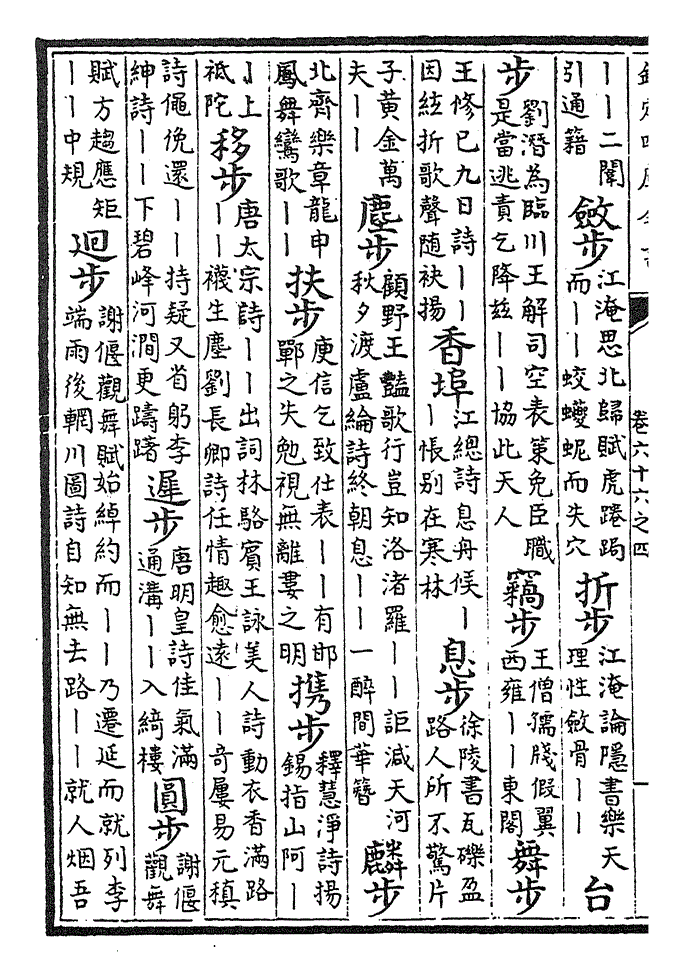 卷六十六之四
丨丨二闈
引通籍
斂步
江淹思北歸賦虎蜷跼
而丨丨蛟蠖蚭而失穴
折步
江淹論隱書樂天
理性斂骨丨丨
台
步
劉潛為臨川王解司空表策免臣職
是當逃責乞降玆丨丨協此天人
竊步
王僧孺牋假翼
西雍丨丨東閣
舞步
王脩已九日詩丨丨
因絃折歌聲随袂揚
香埠
江總詩息舟候丨
丨悵别在寒林
息步
徐陵書瓦礫盈
路人所不驚片
子黄金萬
夫丨丨
塵步
顧野王豔歌行豈知洛渚羅丨丨詎減天河
秋夕渡盧綸詩終朝息丨丨一醉間華簪
麟步
北齊樂章龍申
鳳舞鸞歌丨丨
扶步
庾信乞致仕表丨丨有邯
鄲之失勉視無離婁之明
携步
釋慧淨詩揚
錫指山阿丨
丨上
祗陀
移步
唐太宗詩丨丨出詞林駱賓王詠美人詩動衣香滿路
丨丨襪生塵劉長卿詩任情趣愈遠丨丨奇屢易元稹
詩僶俛還丨丨持疑又省躬李
紳詩丨丨下碧峰河澗更躊躇
遲步
唐明皇詩佳氣滿
通溝丨丨入綺樓
圓步
謝偃
觀舞
賦方趨應矩
丨丨中規
迴步
謝偃觀舞賦始綽約而丨丨乃遷延而就列李
端雨後輞川圖詩自知無去路丨丨就人烟吾